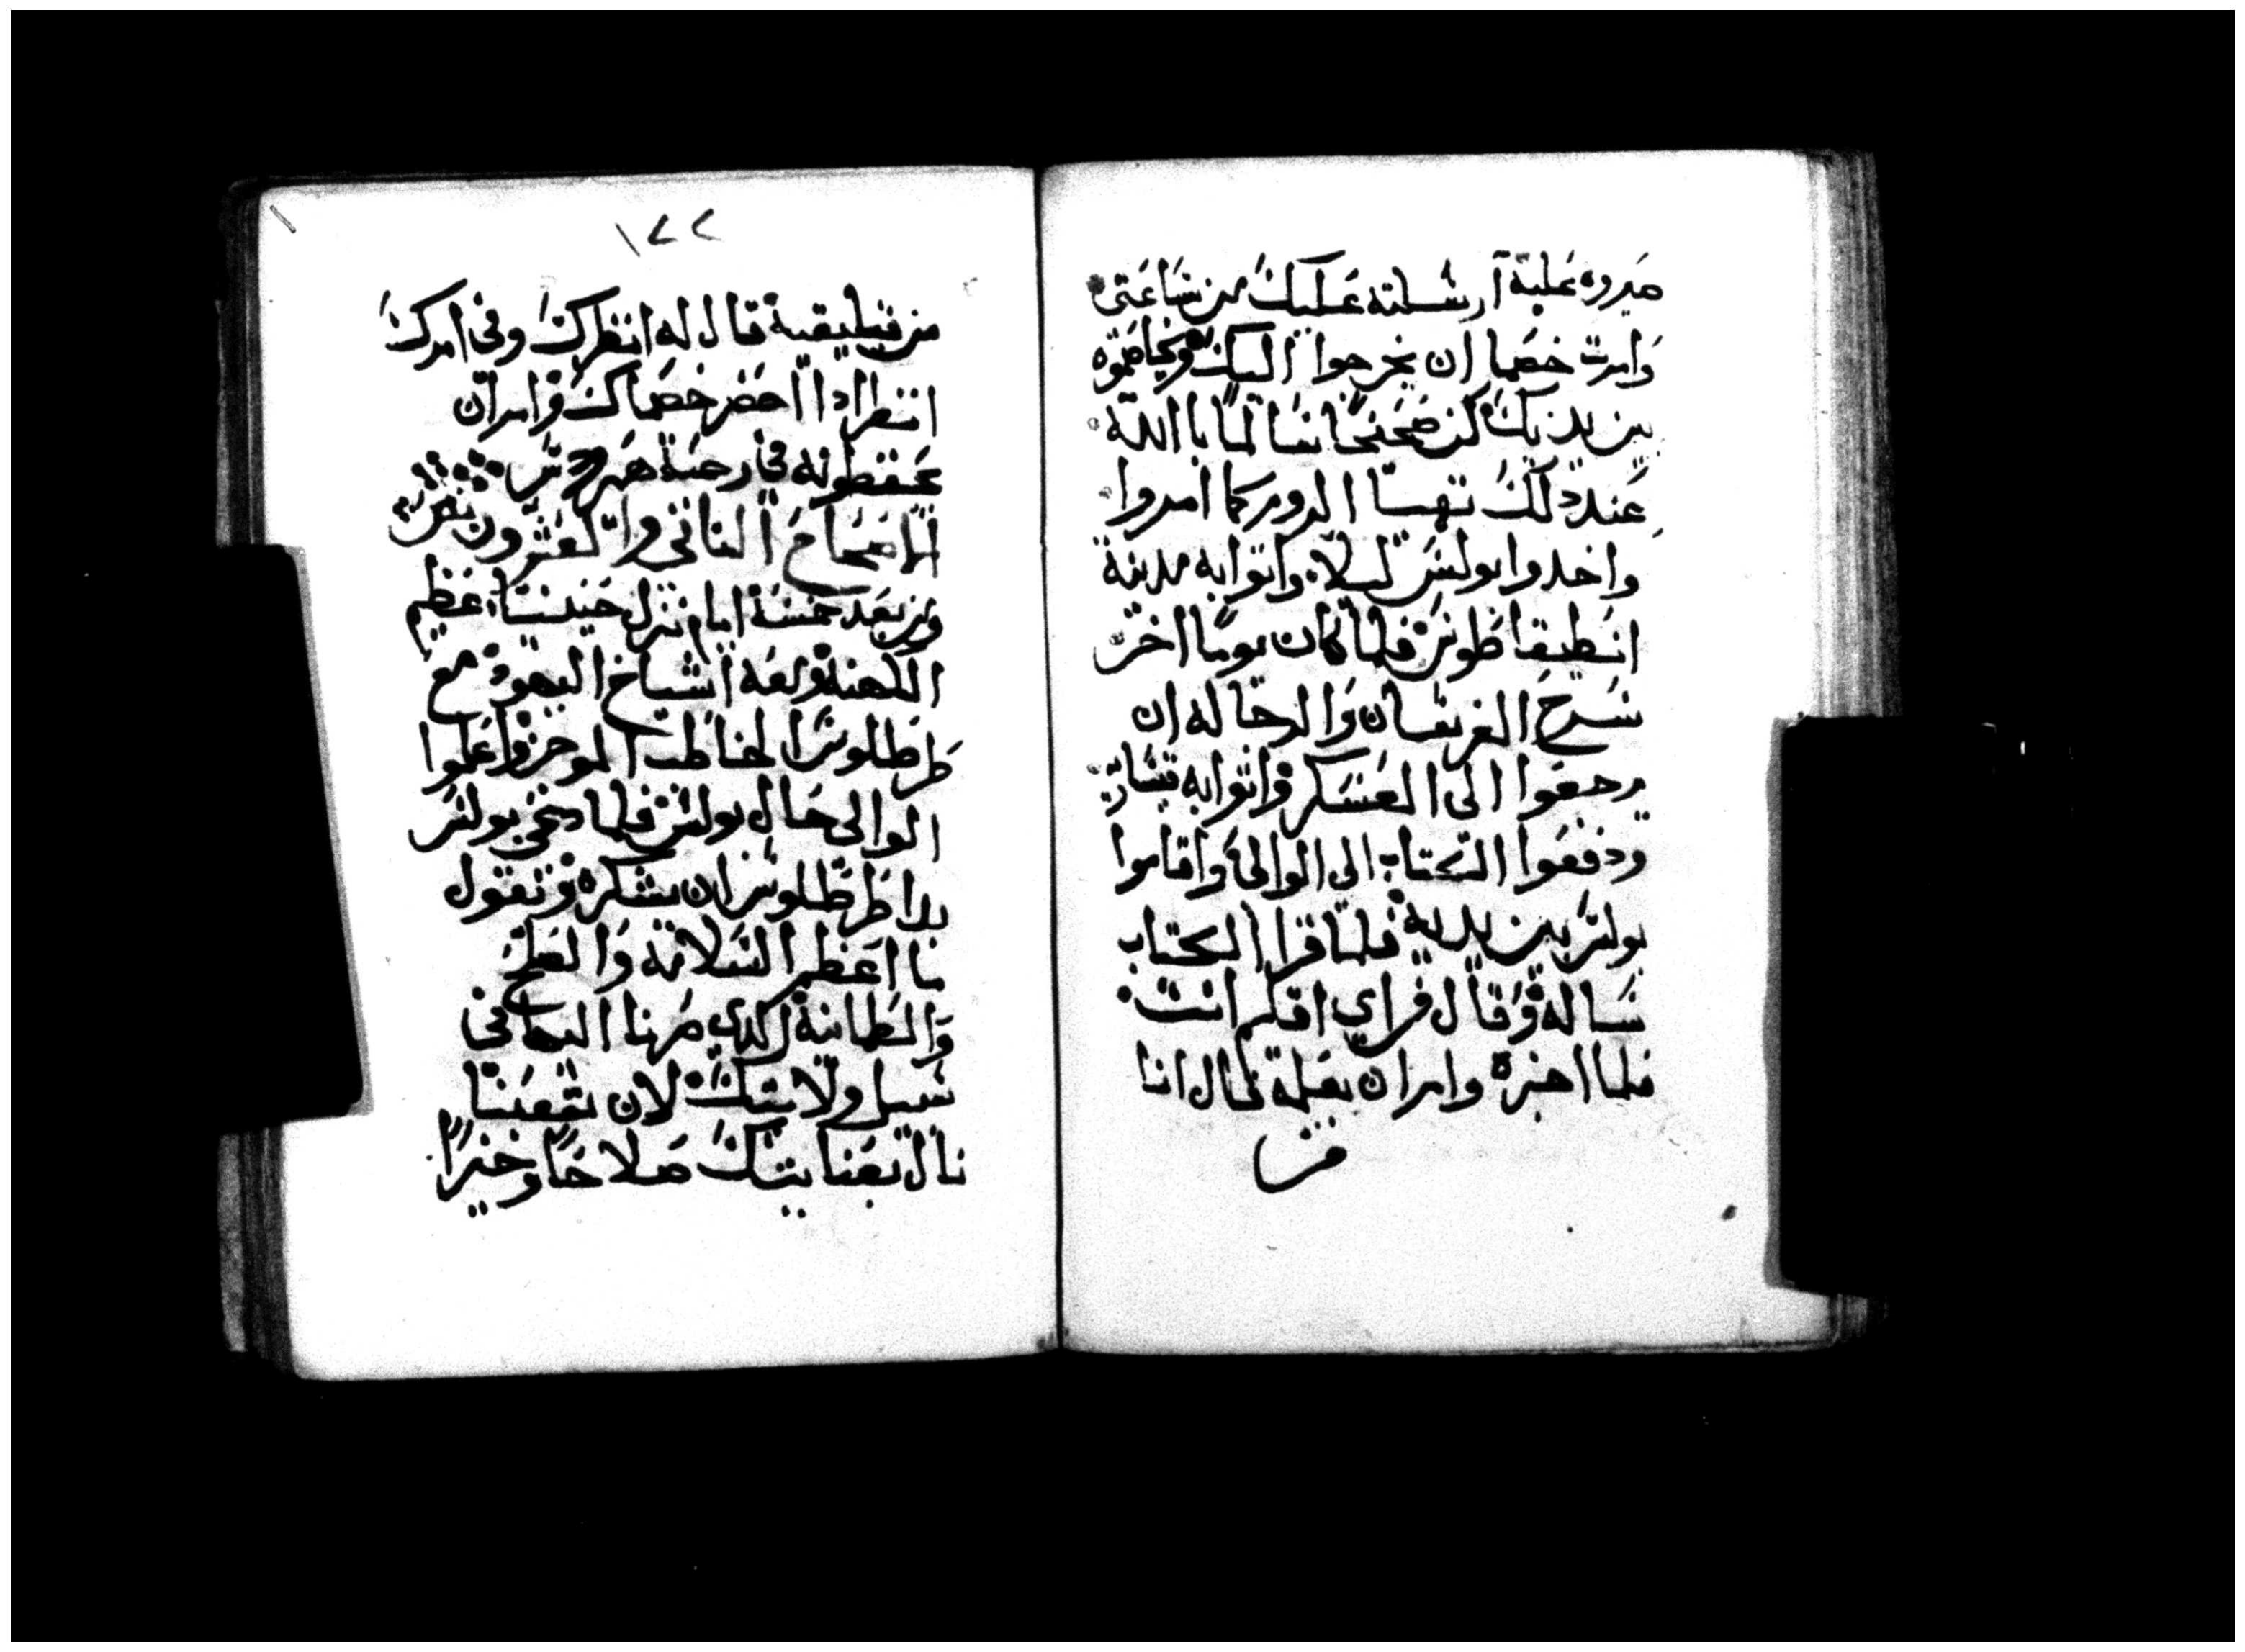 مدروه علية ارسلته عليك من ساعتى
وامرت خصما ان يخرجوا اليك ويخاصموه
بين يديك كن صحيحًا سالمًا باالله
عند دلك تهيا الروم كما امروا
واخدوا بولس ليلاً واتوا به مدينة
انطيقاطوس فلما كان يومًا اخر
سرح الفرسان والرحاله ان
يرجعوا الى العسكر واتوا به قيسارية
ودفعوا الكتاب الي الوالى واقاموا
بولس بين يدية فلما قرا الكتاب
ساله وقال فراي اقلم انت
فلما اخبره وامر ان بعلمه قال انا
من
١٧٧
من قيليقية قال له انظرك وفى امرك
انتظر ادا احضر خصماك وامر ان
يحفظونه في رحبة هيرودس
الاصحاح الثاني والعشرون نص
ومن بعد خمسة ايام نزل حنينيا عظيم
الكهنة ومعه اشياخ اليهود مع
طرطلوس الخاطب الموجز واعلموا
الوالى حال بولس فلما دعي بولس
بدا طرطلوس ان يشكره ويقول
ما اعظم السلامه والصلح
والطمانينة الدي صرنا اليها في
سبيل ولايتك لان شعبنا
نال بعنايتك صلاحًا وخيرًا